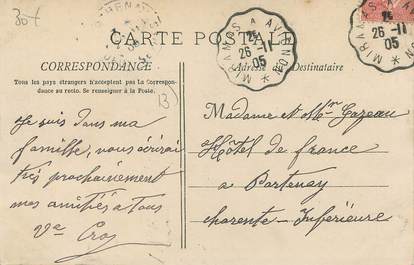 30+
CARTE POSTALE
MIRAMAS A AVIGNON
26 -11
05
MIRAMAS A AVIGNON
26 -11
05
CORRESPONDANCE
Adresse Destinataire
Tous les pays étrangers n'acceptent pas la Correspon-
dance au recto. Se renseigner à la Poste.
13
Je suis dans ma
famille, vous écrirai
très prochainement
mes amitiés a tous
Ve Cros
Madame et Mr Gazeau
Hôtel de france
a Partenay
charente-Inférieure